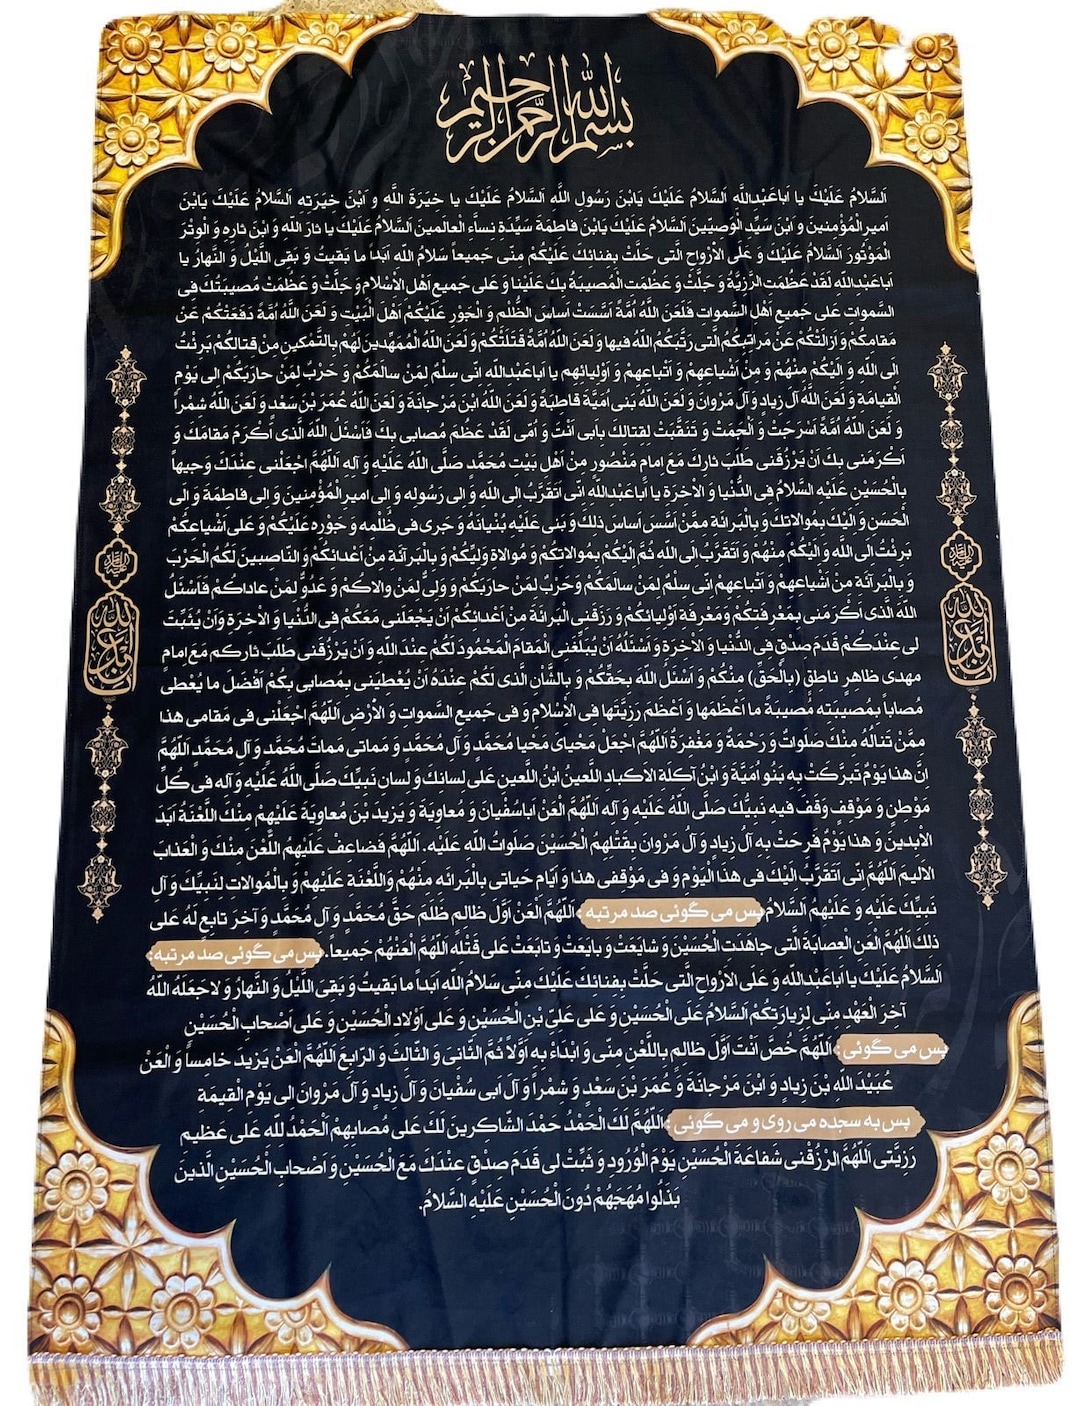 بسم الله الرحمن الرحیم
اَلسَّلامُ عَلَیْكَ یا اَباعَبْدِاللَّهِ اَلسَّلامُ عَلَیْكَ یَابْنَ رَسُولِ اللَّهِ اَلسَّلامُ عَلَیْكَ یا خِیَرَةَ اللَّهِ و ابْنَ خِیَرَتِهِ اَلسَّلامُ عَلَیْكَ یَابْنَ
امیرِالْمُؤْمِنینَ و ابْنَ سَیِّدِ الْوَصِیّینَ اَلسَّلامُ عَلَیْكَ یَابْنَ فاطِمَةَ سَیِّدَةِ نِساءِ الْعالَمینَ اَلسَّلامُ عَلَیْكَ یا ثارَ اللهِ و ابْنَ ثارِهِ و الْوِتْرَ
الْمَوْتُورَ اَلسَّلامُ عَلَیْكَ و عَلَی الاَرْواحِ الَّتی حَلَّتْ بِفِنائِكَ عَلَیْكُمْ مِنّی جَمیعاً سَلامُ اللهِ اَبَداً ما بَقیتُ وَ بَقِیَ اللَّیْلُ وَ النَّهارُ یا
اَباعَبْدِاللهِ لَقَدْ عَظُمَتِ الرَّزِیَّةُ وَ جَلَّتْ وَ عَظُمَتِ الْمُصیبَةُ بِكَ عَلَیْنا وَ عَلی جَمیعِ اَهْلِ الْاِسْلامِ وَ جَلَّتْ وَ عَظُمَتْ مُصیبَتُكَ فِی
السَّمواتِ عَلی جَمیعِ اَهْلِ السَّمواتِ فَلَعَنَ اللَّهُ اُمَّةً اَسَّسَتْ اَساسَ الظُّلْمِ وَ الْجَوْرِ عَلَیْكُمْ اَهْلَ الْبَیْتِ وَ لَعَنَ اللَّهُ اُمَّةً دَفَعَتْكُمْ عَنْ
مَقامِكُمْ وَ اَزالَتْكُمْ عَنْ مَراتِبِكُمُ الَّتی رَتَّبَكُمُ اللَّهُ فیها وَ لَعَنَ اللَّهُ اُمَّةً قَتَلَتْكُمْ وَ لَعَنَ اللهُ الْمُمَهِّدینَ لَهُمْ بِالتَّمْكینِ مِنْ قِتالِكُمْ بَرِئْتُ
اِلَی اللهِ وَ اِلَیْكُمْ مِنْهُمْ وَ مِنْ اَشْیاعِهِمْ وَ اَتْباعِهِمْ وَ اَوْلِیائِهِمْ یا اَباعَبْدِاللَّهِ اِنّی سِلْمٌ لِمَنْ سالَمَكُمْ وَ حَرْبٌ لِمَنْ حارَبَكُمْ اِلی یَوْمِ
الْقِیامَةِ وَ لَعَنَ اللَّهُ آلَ زِیادٍ وَ آلَ مَرْوانَ وَ لَعَنَ اللَّهُ بَنی اُمَیَّةَ قاطِبَةً وَ لَعَنَ اللَّهُ ابْنَ مَرْجانَةَ وَ لَعَنَ اللَّهُ عُمَرَ بْنَ سَعْدٍ وَ لَعَنَ اللَّهُ شِمْراً
وَ لَعَنَ اللَّهُ اُمَّةً اَسْرَجَتْ وَ اَلْجَمَتْ وَ تَنَقَّبَتْ لِقِتالِكَ بِاَبی اَنْتَ وَ اُمّی لَقَدْ عَظُمَ مُصابی بِكَ فَاَسْئَلُ اللَّهَ الَّذی اَكْرَمَ مَقامَكَ وَ
اَكْرَمَنی بِكَ اَنْ یَرْزُقَنی طَلَبَ ثارِكَ مَعَ اِمامٍ مَنْصُورٍ مِنْ اَهْلِ بَیْتِ مُحَمَّدٍ صَلَّی اللَّهُ عَلَیْهِ وَ آلِهِ اَللّهُمَّ اجْعَلْنی عِنْدَكَ وَجیهاً
بِالْحُسَیْنِ عَلَیْهِ السَّلامُ فِی الدُّنْیا وَ الْاخِرَةِ یا اَباعَبْدِاللَّهِ اِنّی اَتَقَرَّبُ اِلَی اللَّهِ وَ اِلی رَسُولِهِ وَ اِلی امیرِالْمُؤْمِنینَ وَ اِلی فاطِمَةَ وَ اِلَی
الْحَسَنِ وَ اِلَیْكَ بِمُوالاتِكَ وَ بِالْبَرائَةِ مِمَّنْ اَسَّسَ اَساسَ ذلِكَ وَ بَنی عَلَیْهِ بُنْیانَهُ وَ جَری فی ظُلْمِهِ وَ جَوْرِهِ عَلَیْكُمْ وَ عَلی اَشْیاعِكُمْ
بَرِئْتُ اِلَی اللهِ وَ اِلَیْكُمْ مِنْهُمْ وَ اَتَقَرَّبُ اِلَی اللهِ ثُمَّ اِلَیْكُمْ بِمُوالاتِكُمْ وَ مُوالاةِ وَلِیِّكُمْ وَ بِالْبَرآئَةِ مِنْ اَعْدائِكُمْ وَ النّاصِبینَ لَكُمُ الْحَرْبَ
وَ بِالْبَرآئَةِ مِنْ اَشْیاعِهِمْ وَ اَتْباعِهِمْ اِنّی سِلْمٌ لِمَنْ سالَمَكُمْ وَ حَرْبٌ لِمَنْ حارَبَكُمْ وَ وَلِیٌّ لِمَنْ والاكُمْ وَ عَدُوٌّ لِمَنْ عاداكُمْ فَاَسْئَلُ
اللهَ الَّذی اَكْرَمَنی بِمَعْرِفَتِكُمْ وَ مَعْرِفَةِ اَوْلِیائِكُمْ وَ رَزَقَنِی الْبَرائَةَ مِنْ اَعْدائِكُمْ اَنْ یَجْعَلَنی مَعَكُمْ فِی الدُّنْیا وَ الْاخِرَةِ وَ اَنْ یُثَبِّتَ
لی عِنْدَكُمْ قَدَمَ صِدْقٍ فِی الدُّنْیا وَ الْاخِرَةِ وَ اَسْئَلُهُ اَنْ یُبَلِّغَنِی الْمَقامَ الْمَحْمُودَ لَكُمْ عِنْدَ اللهِ وَ اَنْ یَرْزُقَنی طَلَبَ ثارِكُمْ مَعَ اِمامٍ
مَهْدِیٍّ ظاهِرٍ ناطِقٍ (بِالْحَقِّ) مِنْكُمْ وَ اَسْئَلُ اللهَ بِحَقِّكُمْ وَ بِالشَّاْنِ الَّذی لَكُمْ عِنْدَهُ اَنْ یُعْطِیَنی بِمُصابی بِكُمْ اَفْضَلَ ما یُعْطی
مُصاباً بِمُصیبَتِهِ مُصیبَةً ما اَعْظَمَها وَ اَعْظَمَ رَزِیَّتَها فِی الْاِسْلامِ وَ فی جَمیعِ السَّمواتِ وَ الْاَرْضِ اَللّهُمَّ اجْعَلْنی فی مَقامی هذا
مِمَّنْ تَنالُهُ مِنْكَ صَلَواتٌ وَ رَحْمَةٌ وَ مَغْفِرَةٌ اَللّهُمَّ اجْعَلْ مَحْیایَ مَحْیا مُحَمَّدٍ وَ آلِ مُحَمَّدٍ وَ مَماتی مَماتَ مُحَمَّدٍ وَ آلِ مُحَمَّدٍ اَللّهُمَّ
اِنَّ هذا یَوْمٌ تَبَرَّكَتْ بِهِ بَنُو اُمَیَّةَ وَ ابْنُ آكِلَةِ الْاَكْبادِ اللَّعینُ ابْنُ اللَّعینِ عَلی لِسانِكَ وَ لِسانِ نَبِیِّكَ صَلَّی اللَّهُ عَلَیْهِ وَ آلِهِ فی كُلِّ
مَوْطِنٍ وَ مَوْقِفٍ وَقَفَ فیهِ نَبِیُّكَ صَلَّی اللَّهُ عَلَیْهِ وَ آلِهِ اَللّهُمَّ الْعَنْ اَباسُفْیانَ وَ مُعاوِیَةَ وَ یَزیدَ بْنَ مُعاوِیَةَ عَلَیْهِمْ مِنْكَ اللَّعْنَةُ اَبَدَ
الْابِدینَ وَ هذا یَوْمٌ فَرِحَتْ بِهِ آلُ زِیادٍ وَ آلُ مَرْوانَ بِقَتْلِهِمُ الْحُسَیْنَ صَلَواتُ اللهِ عَلَیْهِ. اَللّهُمَّ فَضاعِفْ عَلَیْهِمُ اللَّعْنَ مِنْكَ وَ الْعَذابَ
الْاَلیمَ اَللّهُمَّ اِنّی اَتَقَرَّبُ اِلَیْكَ فی هذَا الْیَوْمِ وَ فی مَوْقِفی هذا وَ اَیّامِ حَیاتی بِالْبَرائَةِ مِنْهُمْ وَ اللَّعْنَةِ عَلَیْهِمْ وَ بِالْمُوالاتِ لِنَبِیِّكَ وَ آلِ
نَبِیِّكَ عَلَیْهِ وَ عَلَیْهِمُ السَّلامُ پس می گوئی صد مرتبه: اَللّهُمَّ الْعَنْ اَوَّلَ ظالِمٍ ظَلَمَ حَقَّ مُحَمَّدٍ وَ آلِ مُحَمَّدٍ وَ آخِرَ تابِعٍ لَهُ عَلی
ذلِكَ اَللّهُمَّ الْعَنِ الْعِصابَةَ الَّتی جاهَدَتِ الْحُسَیْنَ وَ شایَعَتْ وَ بایَعَتْ وَ تابَعَتْ عَلی قَتْلِهِ اَللّهُمَّ الْعَنْهُمْ جَمیعاً. پس می گوئی صد مرتبه:
اَلسَّلامُ عَلَیْكَ یا اَباعَبْدِاللهِ وَ عَلَی الْاَرْواحِ الَّتی حَلَّتْ بِفِنائِكَ عَلَیْكَ مِنّی سَلامُ اللهِ اَبَداً ما بَقیتُ وَ بَقِیَ اللَّیْلُ وَ النَّهارُ وَ لا جَعَلَهُ اللهُ
آخِرَ الْعَهْدِ مِنّی لِزِیارَتِكُمْ اَلسَّلامُ عَلَی الْحُسَیْنِ وَ عَلی عَلِیِّ بْنِ الْحُسَیْنِ وَ عَلی اَوْلادِ الْحُسَیْنِ وَ عَلی اَصْحابِ الْحُسَیْنِ
پس می گوئی: اَللّهُمَّ خُصَّ اَنْتَ اَوَّلَ ظالِمٍ بِاللَّعْنِ مِنّی وَ ابْدَاْ بِهِ اَوَّلاً ثُمَّ الثّانِیَ وَ الثّالِثَ وَ الرّابِعَ اَللّهُمَّ الْعَنْ یَزیدَ خامِساً وَ الْعَنْ
عُبَیْدَ اللهِ بْنَ زِیادٍ وَ ابْنَ مَرْجانَةَ وَ عُمَرَ بْنَ سَعْدٍ وَ شِمْراً وَ آلَ اَبی سُفْیانَ وَ آلَ زِیادٍ وَ آلَ مَرْوانَ اِلی یَوْمِ الْقِیمَةِ
پس به سجده می روی و می گوئی: اَللّهُمَّ لَكَ الْحَمْدُ حَمْدَ الشّاكِرینَ لَكَ عَلی مُصابِهِمْ اَلْحَمْدُ لِلَّهِ عَلی عَظیمِ
رَزِیَّتی اَللّهُمَّ ارْزُقْنی شَفاعَةَ الْحُسَیْنِ یَوْمَ الْوُرُودِ وَ ثَبِّتْ لی قَدَمَ صِدْقٍ عِنْدَكَ مَعَ الْحُسَیْنِ وَ اَصْحابِ الْحُسَیْنِ الَّذینَ
بَذَلُوا مُهَجَهُمْ دُونَ الْحُسَیْنِ عَلَیْهِ السَّلامُ.